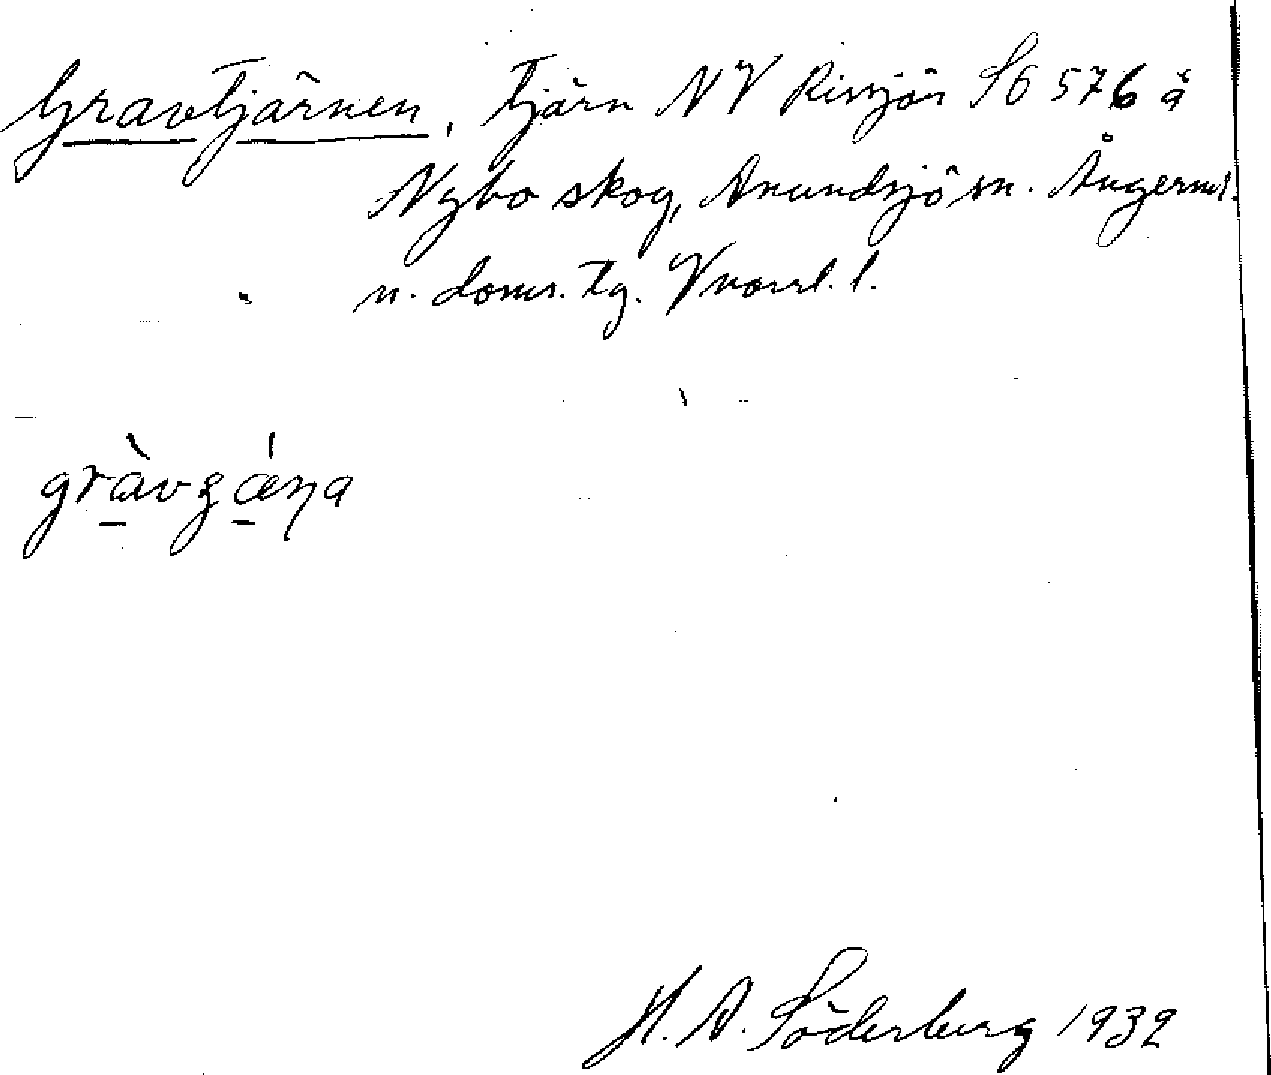 Gravtjärnen, Tjärn NV Rissjön S6 576 å
Nybo skog, Anundsjö sn. Ångerml.
n. doms. tg. Vnorrl. l.
H. A. Söderberg 1932